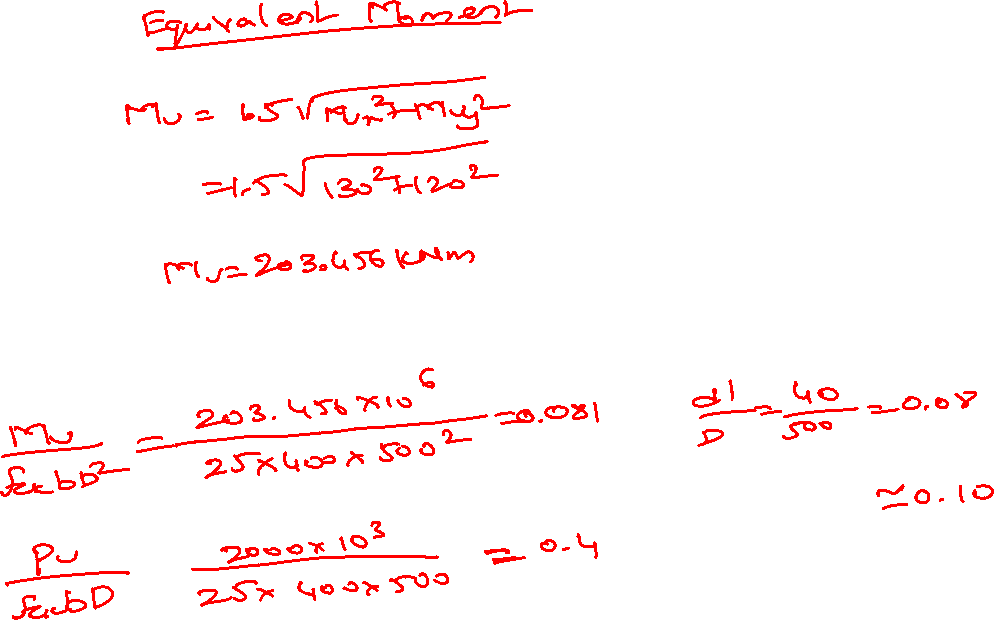 Equivalent Moment
Mu = 1.5 √(Mux² + Muy²)
= 1.5 √(130² + 120²)
Mu = 203.456 kNm
Mu / fck bD² = 203.456 × 10⁶ / 25 × 400 × 500² = 0.081
d' / D = 40 / 500 = 0.08
≃ 0.10
Pu / fck bD 2000 × 10³ / 25 × 400 × 500 = 0.4